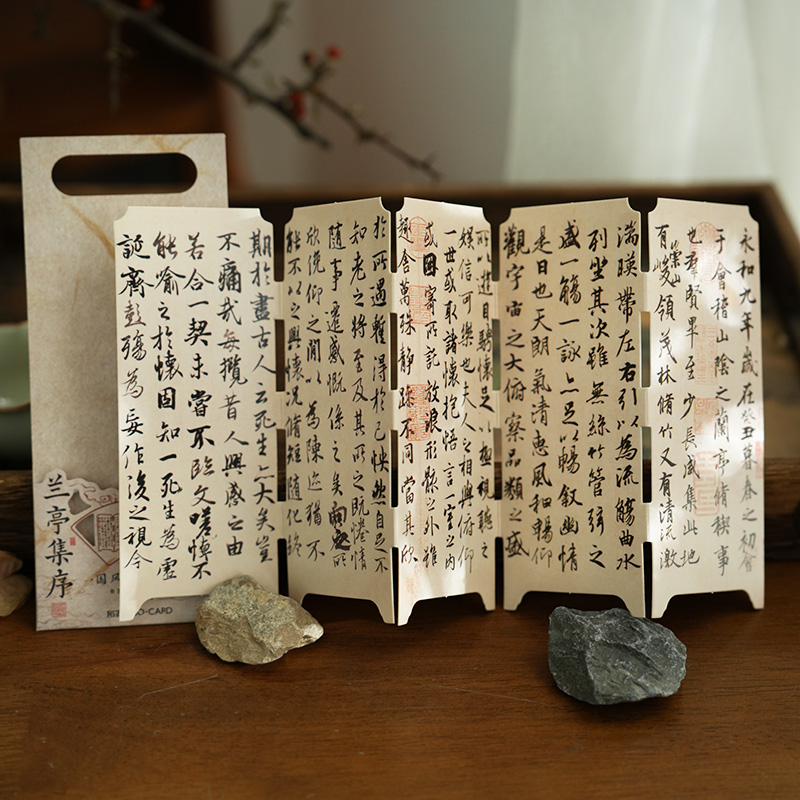 永和九年歲在癸丑暮春之初會
于會稽山陰之蘭亭脩稧事
也羣賢畢至少長咸集此地
有崇山峻領茂林脩竹又有清流激
湍暎帶左右引以為流觴曲水
列坐其次雖無絲竹管弦之
盛一觴一詠亦足以暢叙幽情
是日也天朗氣清惠風和暢仰
觀宇宙之大俯察品類之盛
所以遊目騁懷足以極視聽之
娛信可樂也夫人之相與俯仰
一世或取諸懷抱悟言一室之內
或因寄所託放浪形骸之外雖
趣舍萬殊靜躁不同當其欣
於所遇蹔得於己怏然自足不
知老之將至及其所之既惓情
隨事遷感慨係之矣向之所
欣俛仰之閒以為陳迹猶不
能不以之興懷況脩短隨化終
期於盡古人云死生亦大矣豈
不痛哉每攬昔人興感之由
若合一契未嘗不臨文嗟悼不
能喻之於懷固知一死生為虛
誕齊彭殤為妄作後之視今
兰亭集序
国风
O-CARD